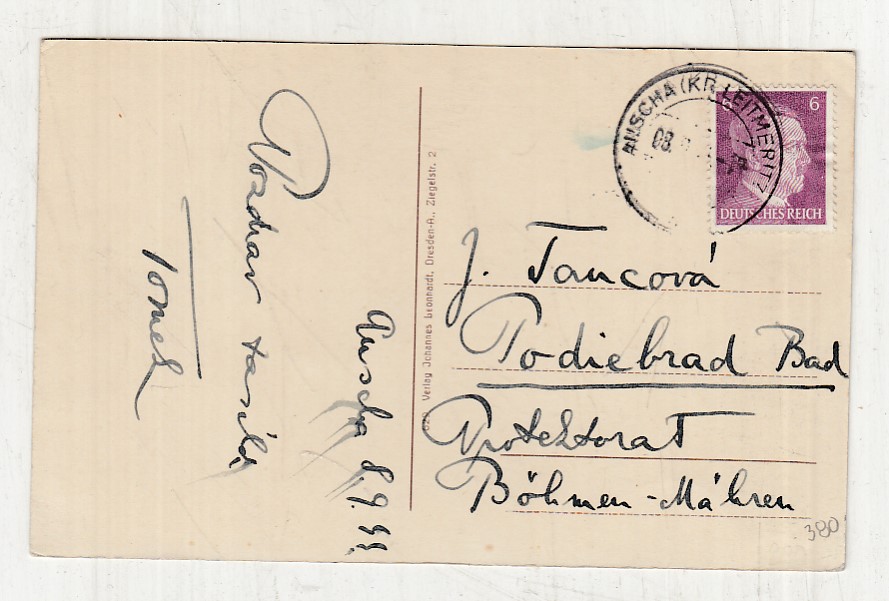 Auscha 8.9.44
Pozdrav zasílá
Tomek
620 Verlag Johannes Leonhardt, Dresden-A., Ziegelstr. 2
AUSCHA (KR. LEITMERITZ)
08.
6
6
DEUTSCHES REICH
J. Tancová
Podiebrad Bad
Protektorat
Böhmen-Mähren
380